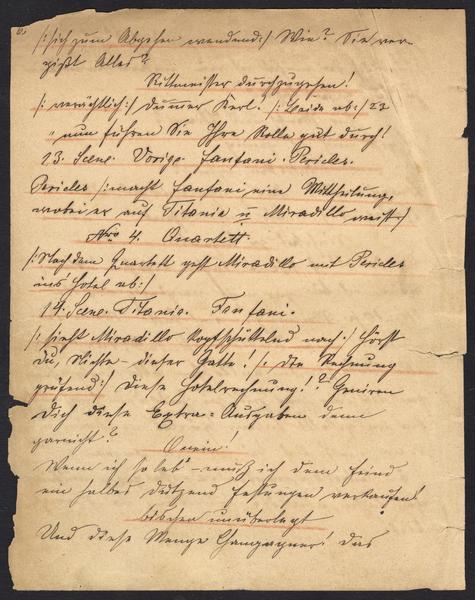 /: sich zum Abgehen wendend :/ Wie? Sie ver-
gißt Alles?
Rittmeister durchzugehen!
/: verächtlich :/ Dummer Kerl! /: Beide ab :/ 23
" nun führen Sie Ihre Rolle gut durch!
13. Scene. Vorige. Fanfani. Pericles.
Pericles /: macht Fanfani eine Mittheilung,
wobei er auf Titania u Miradillo weist :/
Nro 4. Quartett.
/: Nach dem Quartett geht Miradillo mit Pericles
ins Hotel ab :/
14. Scene. Titania. Fanfani.
/: sieht Miradillo kopfschüttelnd nach :/ Hörst
Du, Nichte – dieser Gatte! /: die Rechnung
prüfend :/ Diese Hotelrechnung!? Geniren
Dich diese Extra-Ausgaben denn
garnicht?
O nein!
Wenn ich so leb' – muß ich dem Feind
ein halbes Dutzend Festungen verkaufen!
bischen unüberlegt
Und diese Menge Champagner! Das